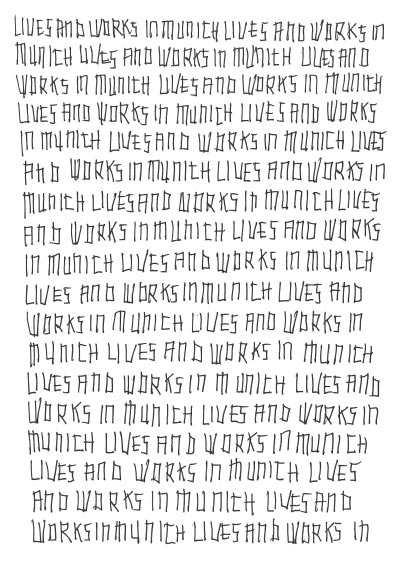 LIVES AND WORKS IN MUNICH LIVES AND WORKS IN
MUNICH LIVES AND WORKS IN MUNICH LIVES AND
WORKS IN MUNICH LIVES AND WORKS IN MUNICH
LIVES AND WORKS IN MUNICH LIVES AND WORKS
IN MUNICH LIVES AND WORKS IN MUNICH LIVES
AND WORKS IN MUNICH LIVES AND WORKS IN
MUNICH LIVES AND WORKS IN MUNICH LIVES
AND WORKS IN MUNICH LIVES AND WORKS
IN MUNICH LIVES AND WORKS IN MUNICH
LIVES AND WORKS IN MUNICH LIVES AND
WORKS IN MUNICH LIVES AND WORKS IN
MUNICH LIVES AND WORKS IN MUNICH
LIVES AND WORKS IN MUNICH LIVES AND
WORKS IN MUNICH LIVES AND WORKS IN
MUNICH LIVES AND WORKS IN MUNICH
LIVES AND WORKS IN MUNICH LIVES
AND WORKS IN MUNICH LIVES AND
WORKS IN MUNICH LIVES AND WORKS IN